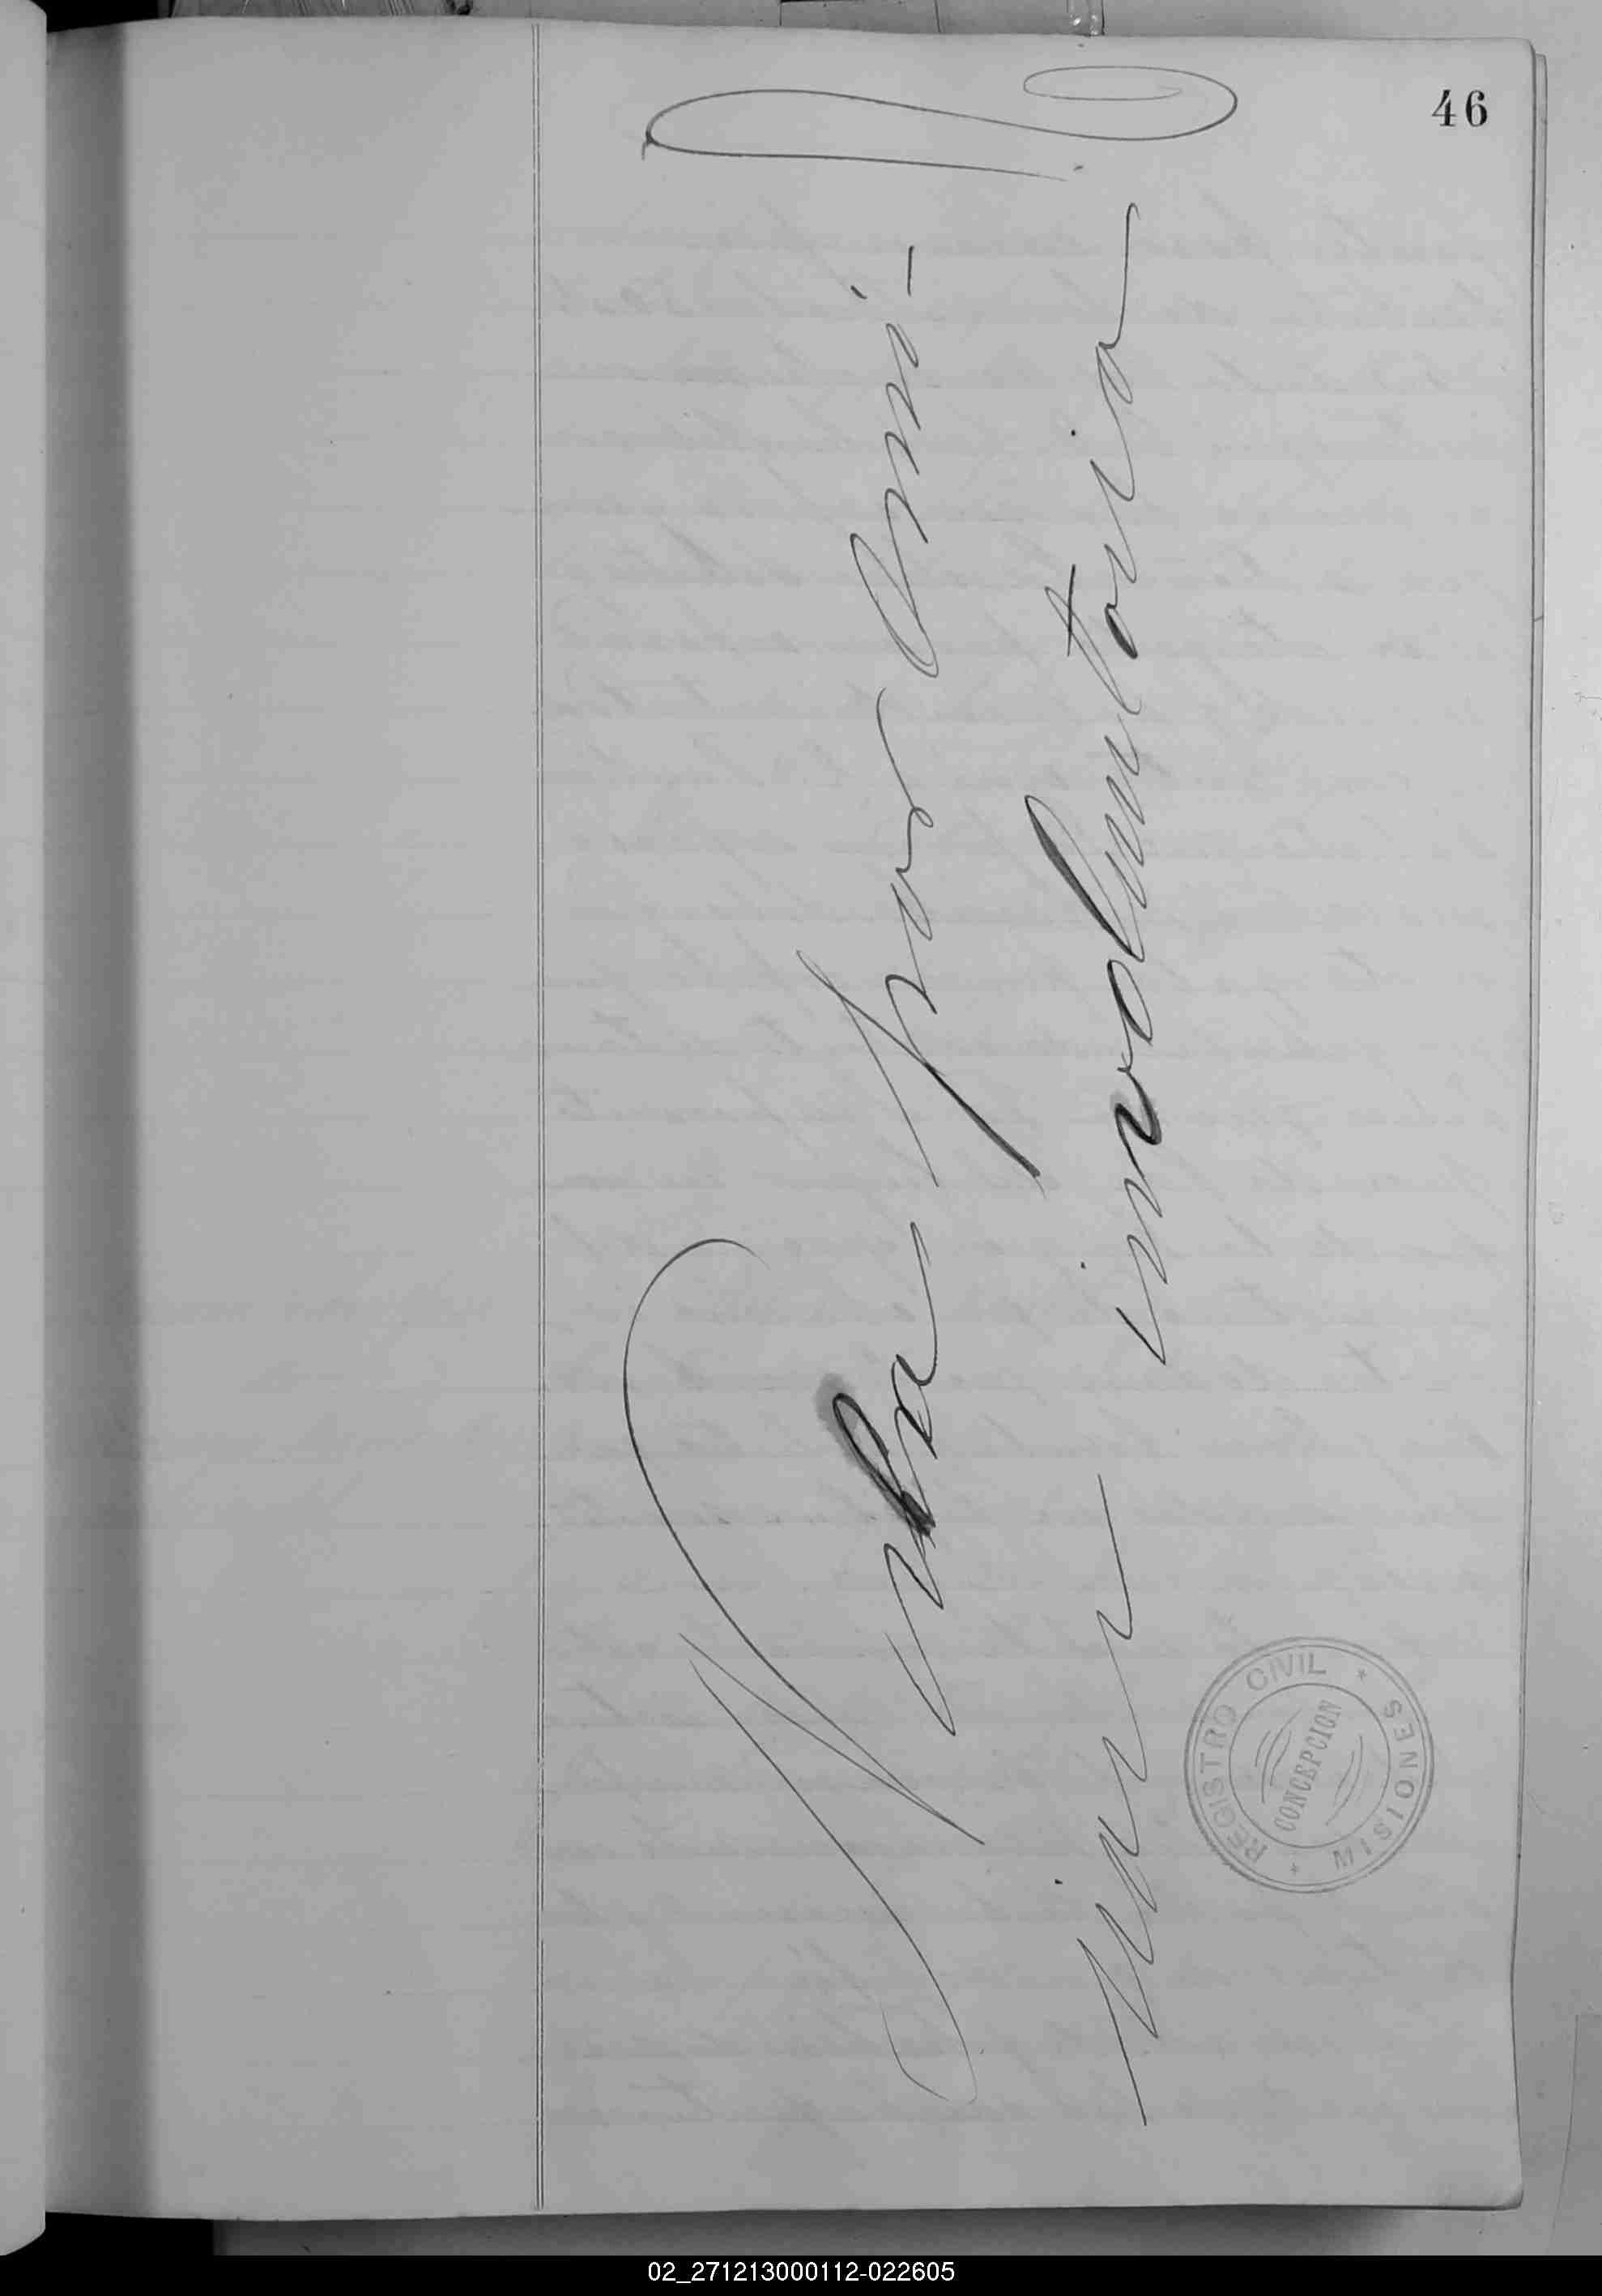 46
Nula por Omi-
sion involuntaria
REGISTRO CIVIL
CONCEPCION
MISIONES
02_271213000112-022605